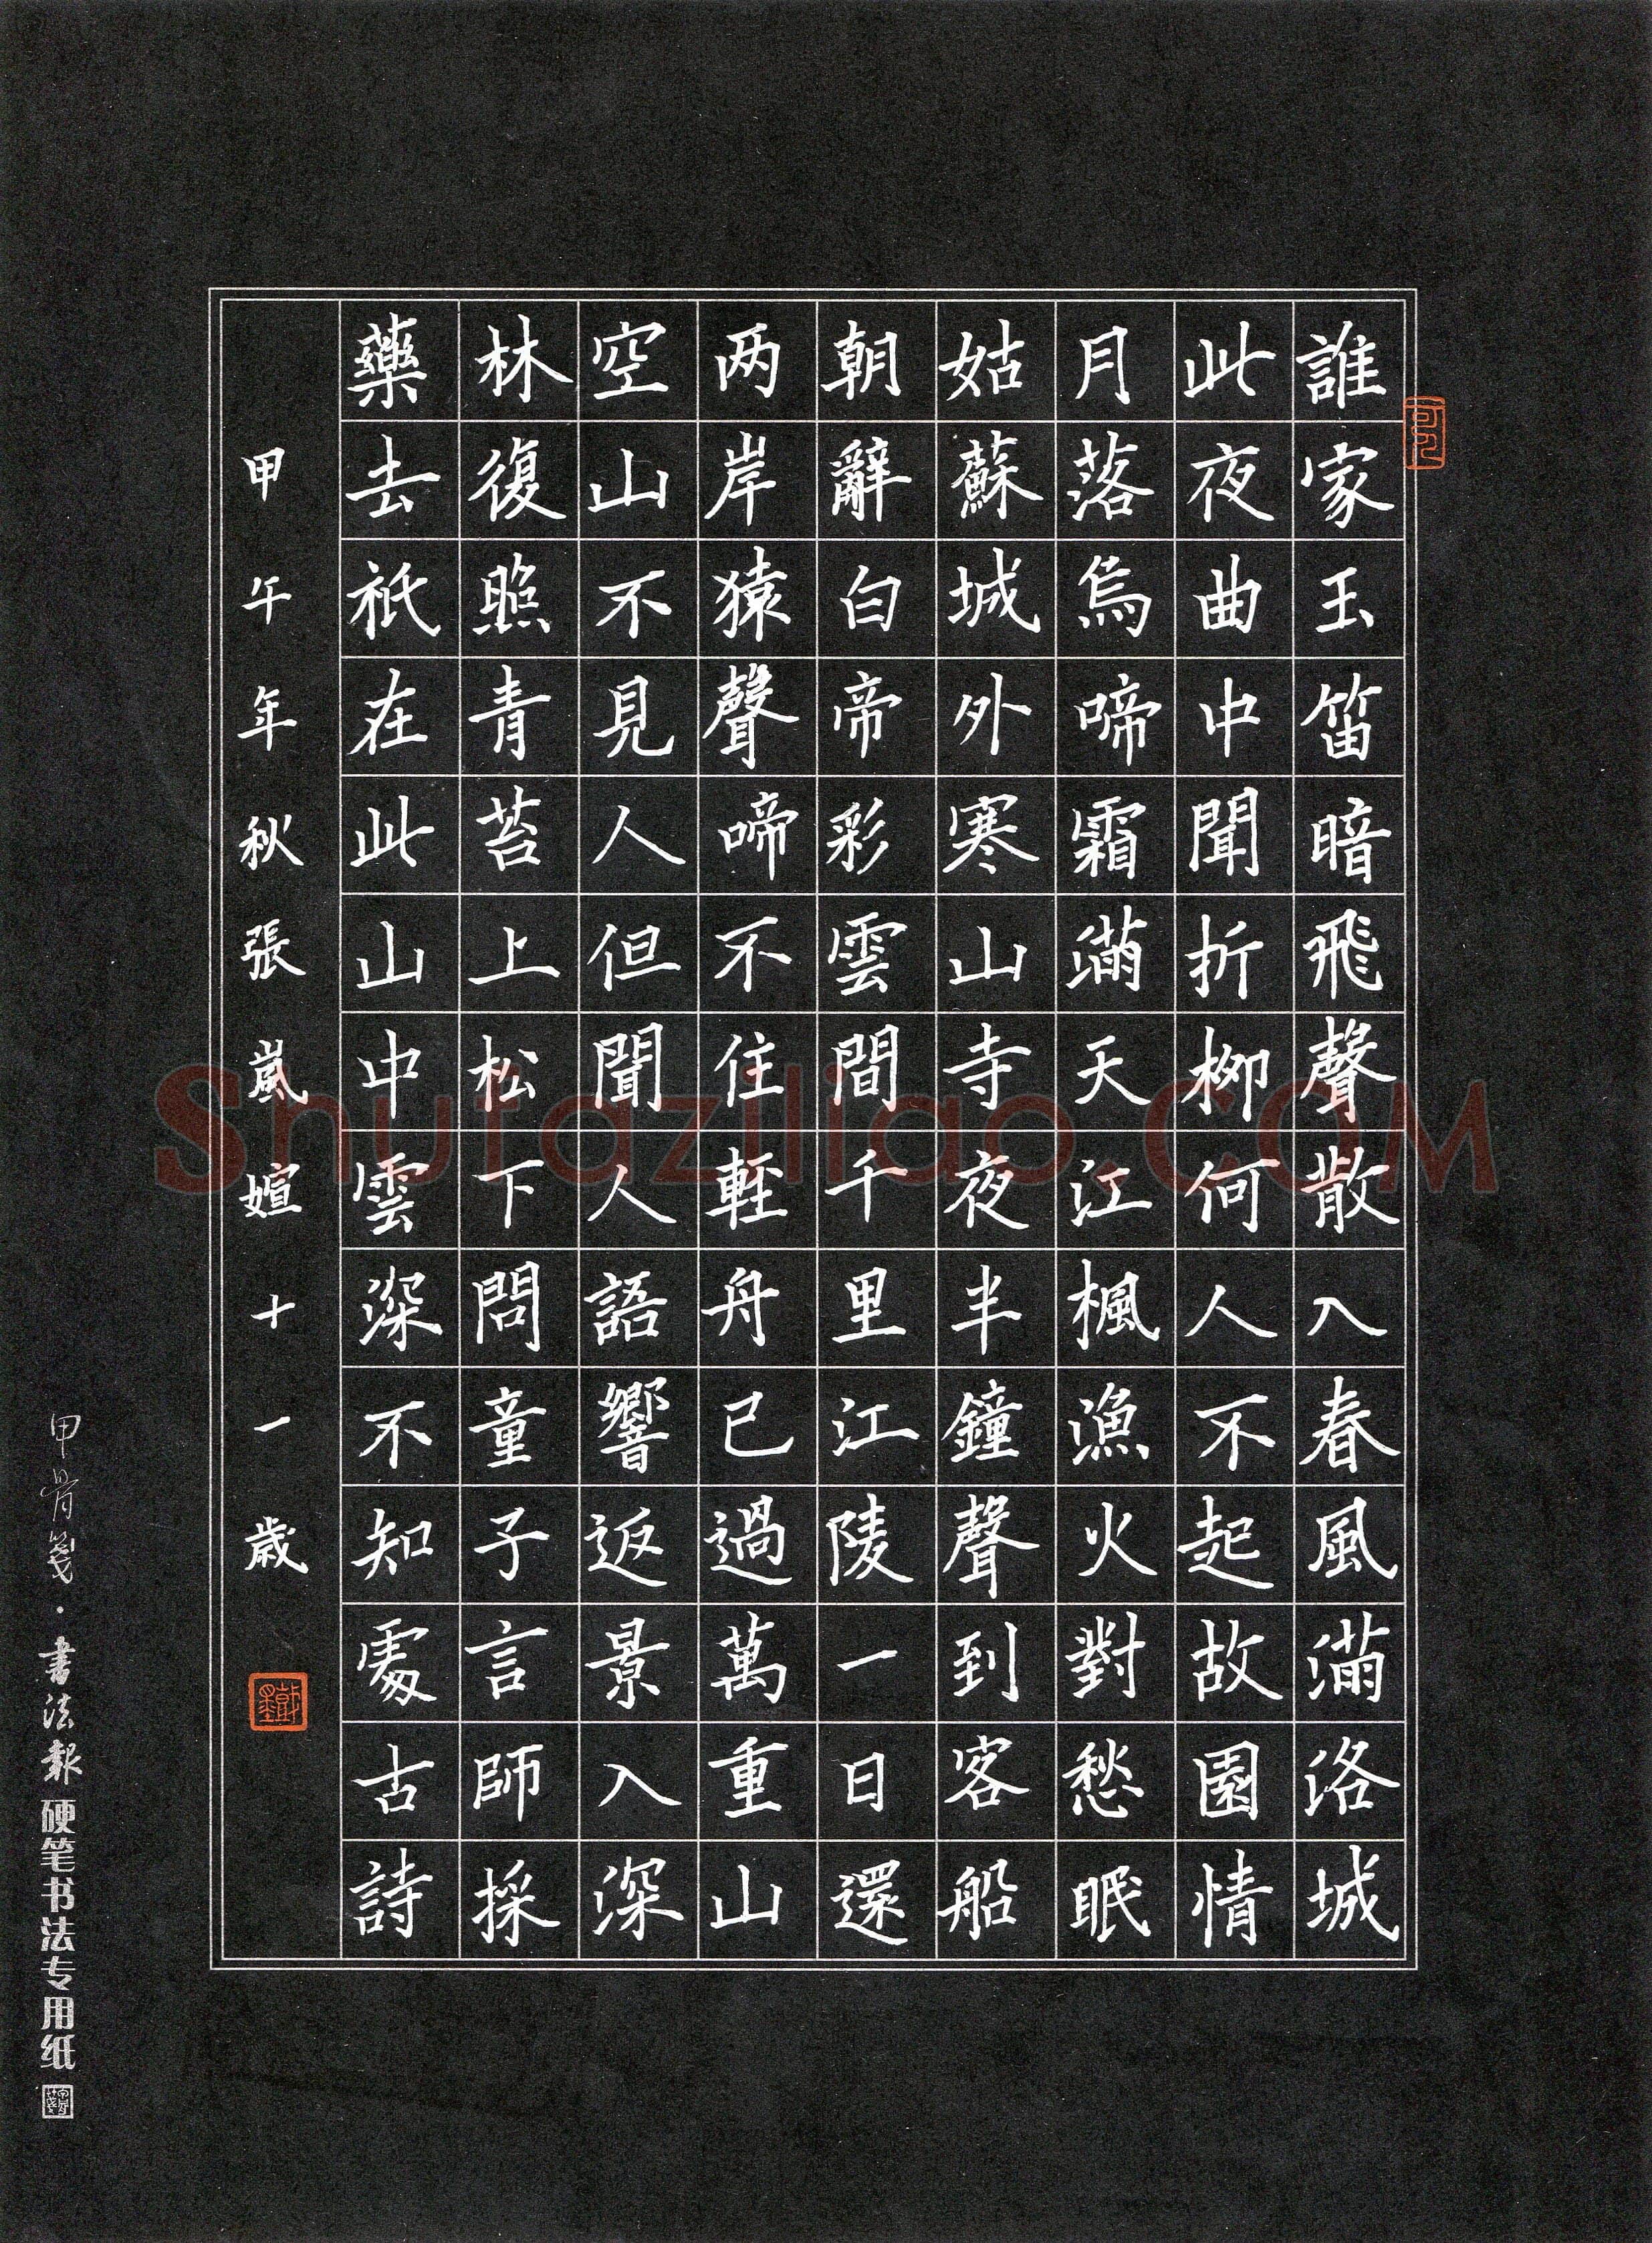 誰家玉笛暗飛聲散入春風滿洛城
此夜曲中聞折柳何人不起故園情
月落烏啼霜滿天江楓漁火對愁眠
姑蘇城外寒山寺夜半鐘聲到客船
朝辭白帝彩雲間千里江陵一日還
两岸猿聲啼不住輕舟已過萬重山
空山不見人但聞人語響返景入深
林復照青苔上松下問童子言師採
藥去祇在此山中雲深不知處古詩
甲午年秋張嵐媗十一歲
甲骨箋·書法報 硬笔书法专用纸
Shufaziliao.COM